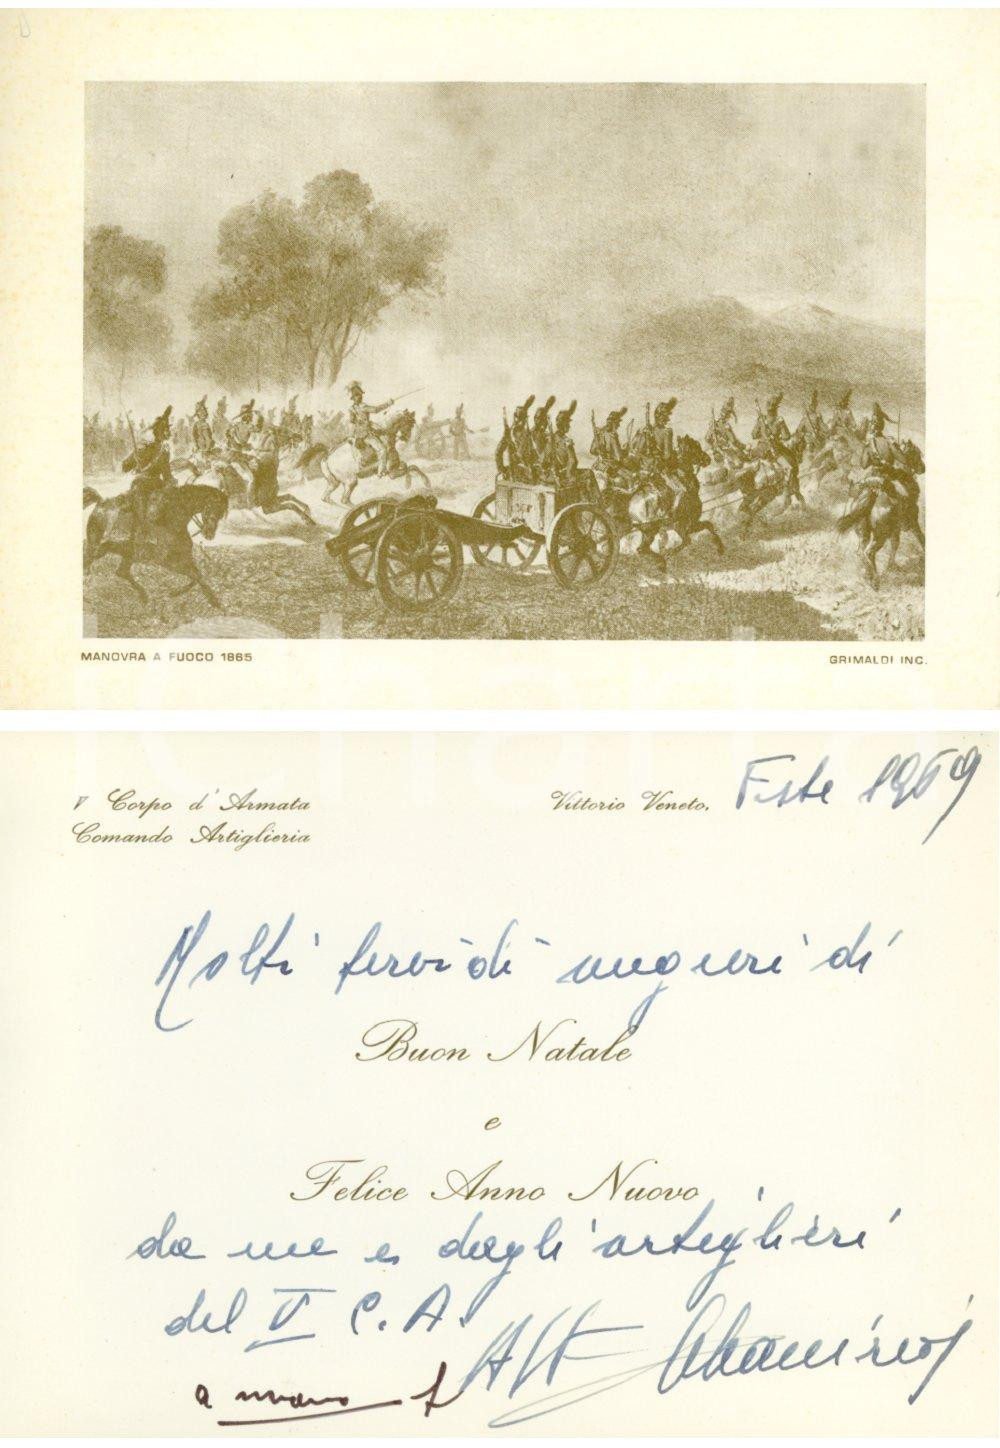 MANOVRA A FUOCO 1865
GRIMALDI INC.
V Corpo d' Armata
Comando Artiglieria
Vittorio Veneto, Feste 1969
Molti fervidi auguri di
Buon Natale
e
Felice Anno Nuovo
da me e dagli artiglieri
del V C. A.
a mano